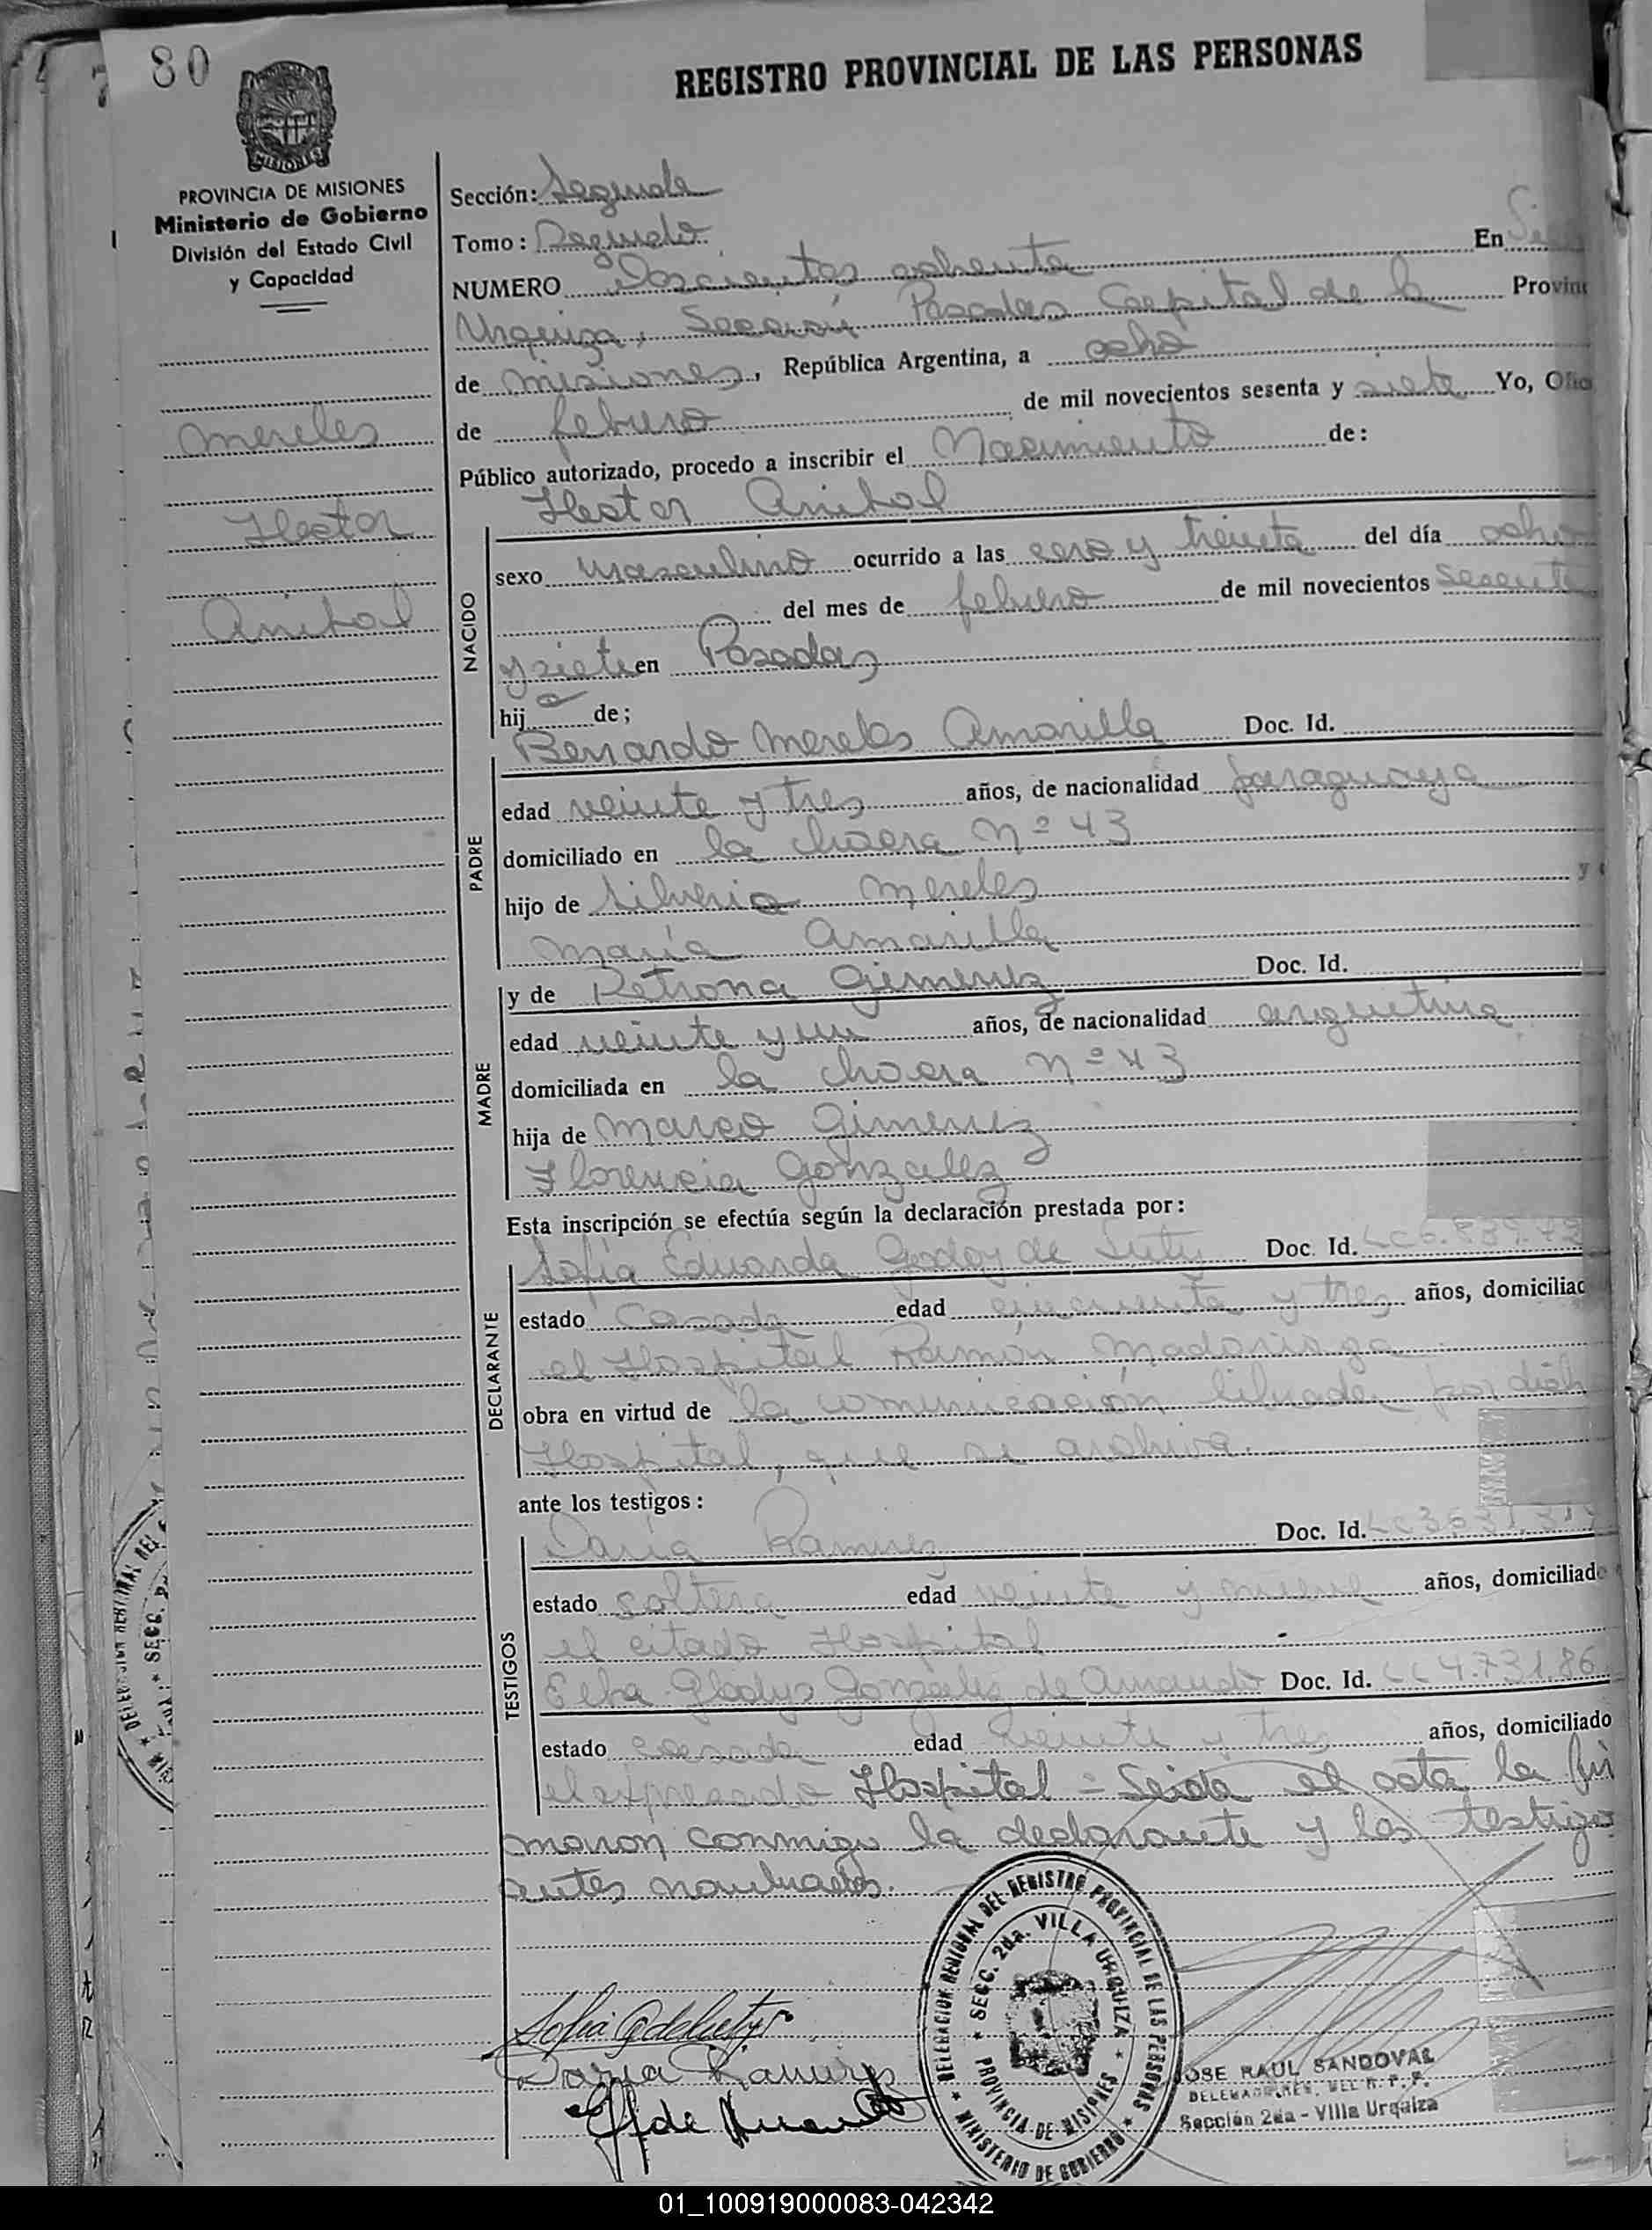 80
REGISTRO PROVINCIAL DE LAS PERSONAS
MISIONES
PROVINCIA DE MISIONES
Ministerio de Gobierno
División del Estado Civil
y Capacidad
Mereles
Hector
Anibal
Sección: Segunda
Tomo: Segundo
NUMERO Doscientos ochenta En
Urquiza, Sección Posadas Capital de la Provin
de Misiones, República Argentina, a ocho
de febrero de mil novecientos sesenta y siete Yo, Ofic
Público autorizado, procedo a inscribir el Nacimiento de:
Hector Anibal
NACIDO
sexo masculino ocurrido a las cero y treinta del día ocho
del mes de febrero de mil novecientos sesenta
y siete en Posadas
hijo de;
Bernardo Mereles Amarilla Doc. Id.
PADRE
edad veinte y tres años, de nacionalidad paraguaya
domiciliado en la chacra Nº 43
hijo de Silverio Mereles y
María Amarilla
y de Petrona Gimenez Doc. Id.
MADRE
edad veinte y un años, de nacionalidad argentina
domiciliada en la chacra Nº 43
hija de Marco Gimenez
Florencia Gonzalez
Esta inscripción se efectúa según la declaración prestada por:
Sofía Eduarda Godoy de Doc. Id. LC6.839.
DECLARANTE
estado Casada edad cincuenta y tres años, domiciliad
el Hospital Ramón Madariaga
obra en virtud de la comunicación librada por dich
Hospital, que se archiva.
ante los testigos:
Ramirez Doc. Id. LC
TESTIGOS
estado soltera edad veinte y nueve años, domiciliado
el citado Hospital
Elba Gladys Gonzalez de Doc. Id. LC4.731.86
estado casada edad veinte y tres años, domiciliado
el expresado Hospital = Leida el acta la fir
maron conmigo la declarante y los testigos
antes nombrados.
DELEGACION REGIONAL DEL REGISTRO PROVINCIAL DE LAS PERSONAS
SECC. 2da. VILLA URQUIZA
PROVINCIA DE MISIONES
MINISTERIO DE GOBIERNO
Ramirez
JOSE RAUL SANDOVAL
DELEGADO REG. DEL R. P. P.
Sección 2da - Villa Urquiza
01_100919000083-042342